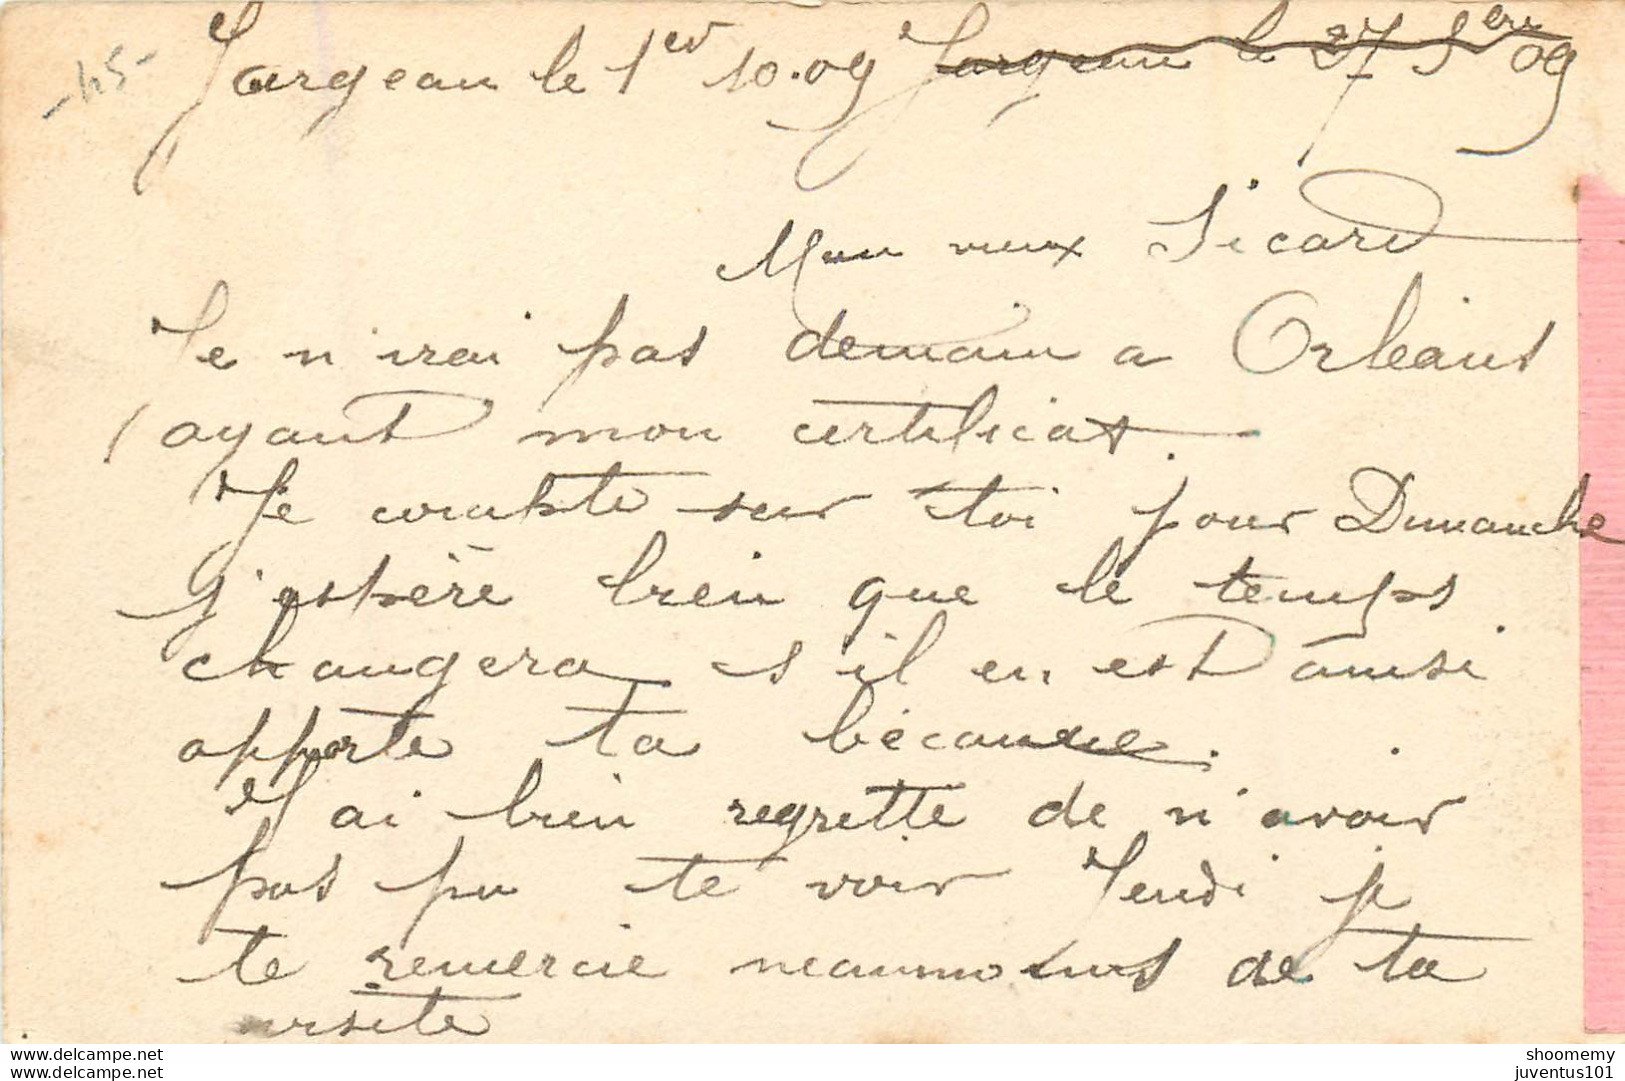 -45-
Jargeau le 1er 10.09 Jargeau le 27 9bre 09
Mon vieux Sicard
Je n'irai pas demain a Orléans
ayant mon certificat.
Je compte sur toi pour Dimanche
j'espère bien que le temps
changera s'il en est ainsi
apporte ta bécanne.
J'ai bien regretté de n'avoir
pas pu te voir Jeudi je
te remercie neanmoins de ta
visite
juventus101.delcampe.net
juventus101.delcampe.net
shoomemy
juventus101